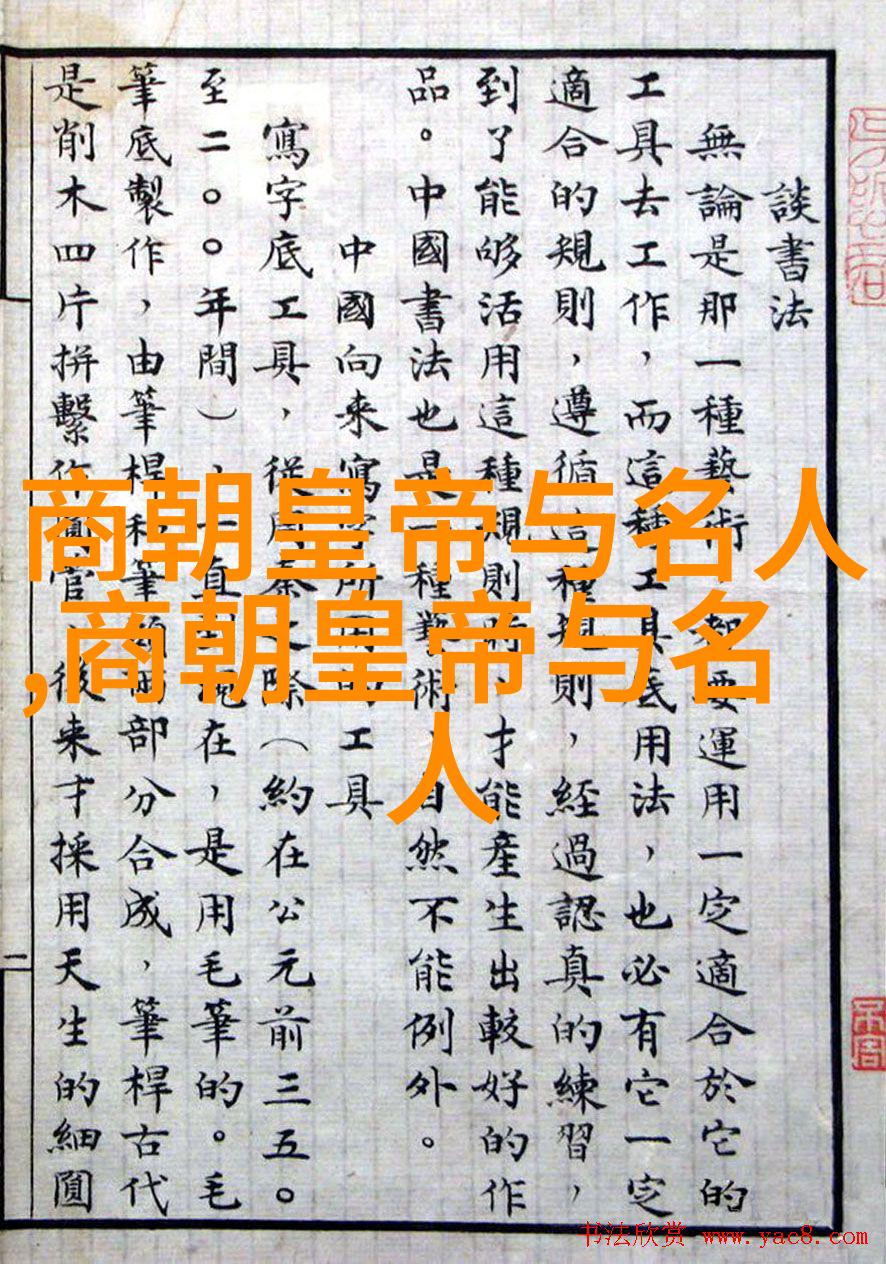 談書法
無論是那一種藝術，都要運用一定適合於它的
工具去工作，而這種工具底用法，也必有它一定
適合的規則，遵循這種規則，經過認真的練習，
到了能够活用這種規則時，才能產生出較好的作
品。中國書法也是一種藝術，自然不能例外。
中國向来寫字所用的工具
寫字底工具，從周秦之際（約在公元前三五〇
至二〇〇年間），一直到現在，是用毛筆的。毛
筆底製作，由筆桿和筆頭兩部分合成，筆桿古代
是削木四片拼繫作圓管，後来才採用天生的細圓
二
商朝皇帝与名人
,商朝皇帝与名
人
书法欣赏 www.yac8.com